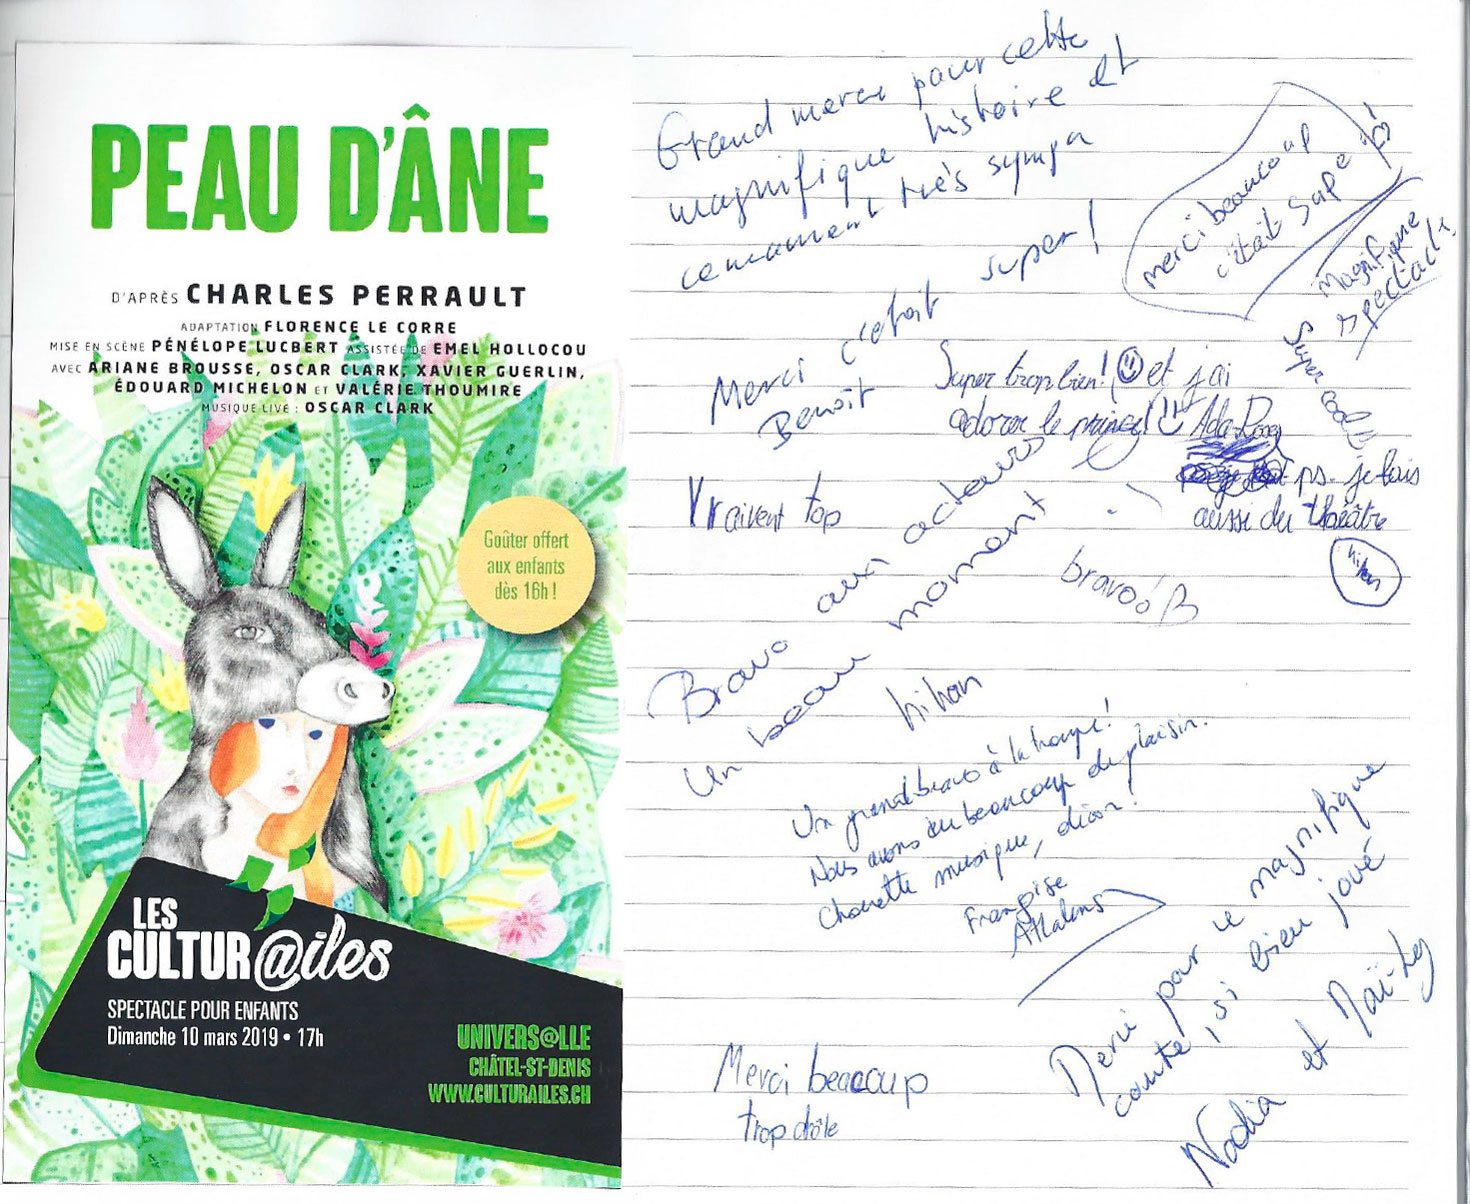 PEAU D'ÂNE
D'APRÈS CHARLES PERRAULT
ADAPTATION FLORENCE LE CORRE
MISE EN SCÈNE PÉNÉLOPE LUCBERT ASSISTÉE DE EMEL HOLLOCOU
AVEC ARIANE BROUSSE, OSCAR CLARK, XAVIER GUERLIN,
ÉDOUARD MICHELON ET VALÉRIE THOUMIRE
MUSIQUE LIVE : OSCAR CLARK
Goûter offert
aux enfants
dès 16h !
LES
CULTUR@iles
SPECTACLE POUR ENFANTS
Dimanche 10 mars 2019 • 17h
UNIVERS@LLE
CHÂTEL-ST-DENIS
WWW.CULTURAILES.CH
Grand merci pour cette
magnifique histoire et
très sympa
merci beaucoup
c'était supe
Magnifique
spectacle
Super cool
Merci c'etait super!
Benoît
Super trop bien! et j'ai
adorer le prince! Ada-Rose
ps. je fais
aussi du théâtre
hihan
Vraivent top
Bravo aux acteurs
Un beau moment
bravoo B
hihan
Un grand bravo à la troupe!
Nous avons eu beaucoup de plaisir.
Chouette musique, décor!
Françoise
Attalens
Merci pour ce magnifique
conte, si bien joué
Nadia et Maï-Ly
Merci beaucoup
trop drôle